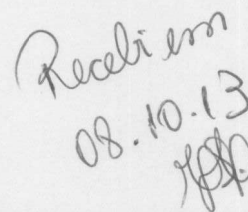 Recebi em
08.10.13